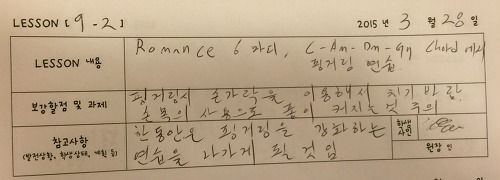 LESSON [9-2] 2015 년 3 월 28 일
LESSON 내용
Romance 6 마디, C-Am-Dm-G7 chord 에서
핑거링 연습.
보강할점 및 과제
핑거링시 손가락을 이용해서 치기 바람.
손목의 사용으로 폼이 커지는 것 주의
참고사항
(발전상황, 학생상태, 계획 등)
한동안은 핑거링을 강화하는
연습을 나가게 될 것임
학생
사인
원장 인